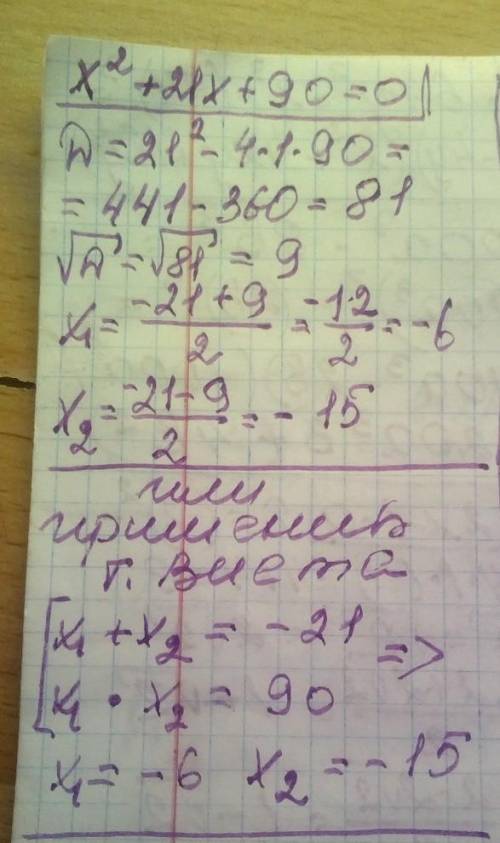 x² + 21x + 90 = 0
D = 21² - 4·1·90 =
= 441 - 360 = 81
√D = √81 = 9
x₁ = (-21 + 9)/2 = -12/2 = -6
x₂ = (-21 - 9)/2 = - 15
или
применив
т. Виета
[x₁ + x₂ = -21 =>
x₁ · x₂ = 90
x₁ = -6 x₂ = -15